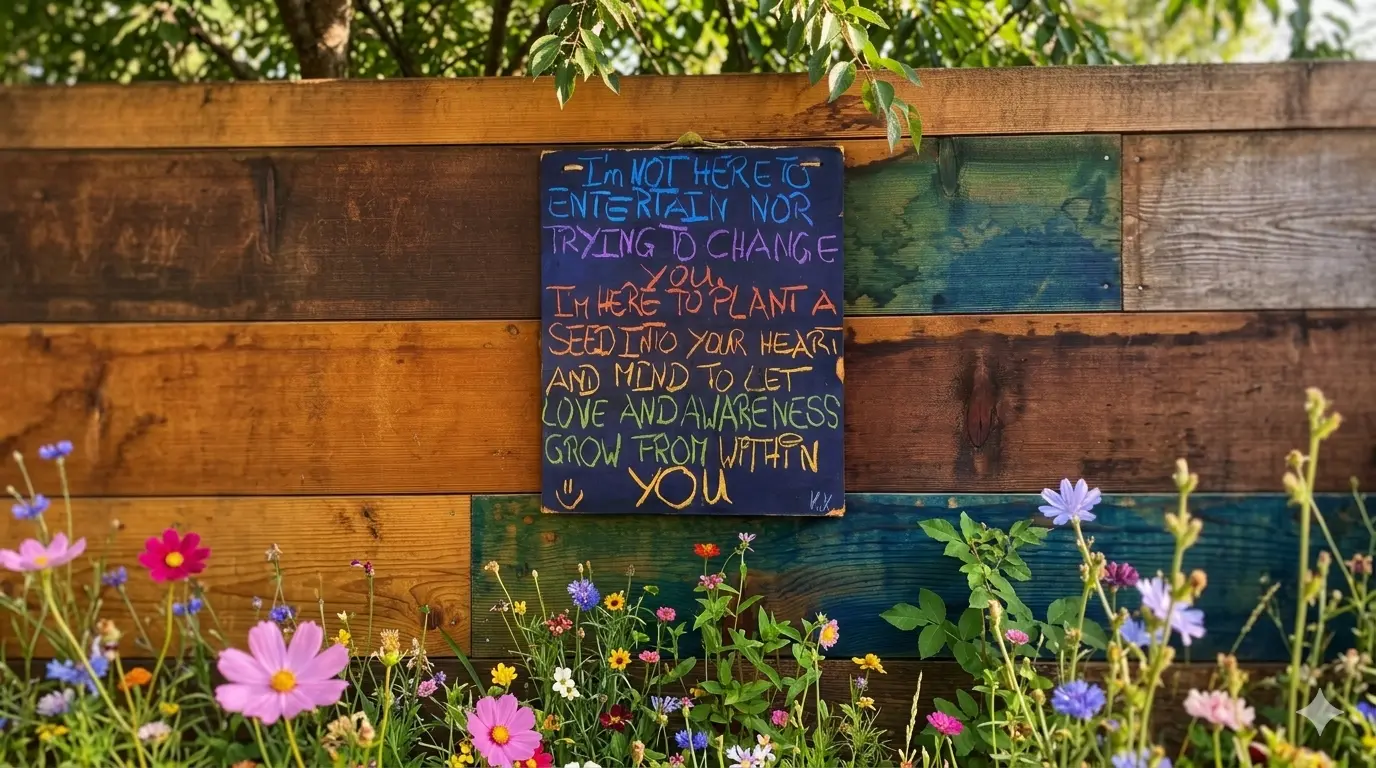 I'm NOT HERE TO
ENTERTAIN NOR
TRYING TO CHANGE
YOU,
I'm HERE TO PLANT A
SEED INTO YOUR HEART
AND MIND TO LET
LOVE AND AWARENESS
GROW FROM WITHIN
YOU
V.K